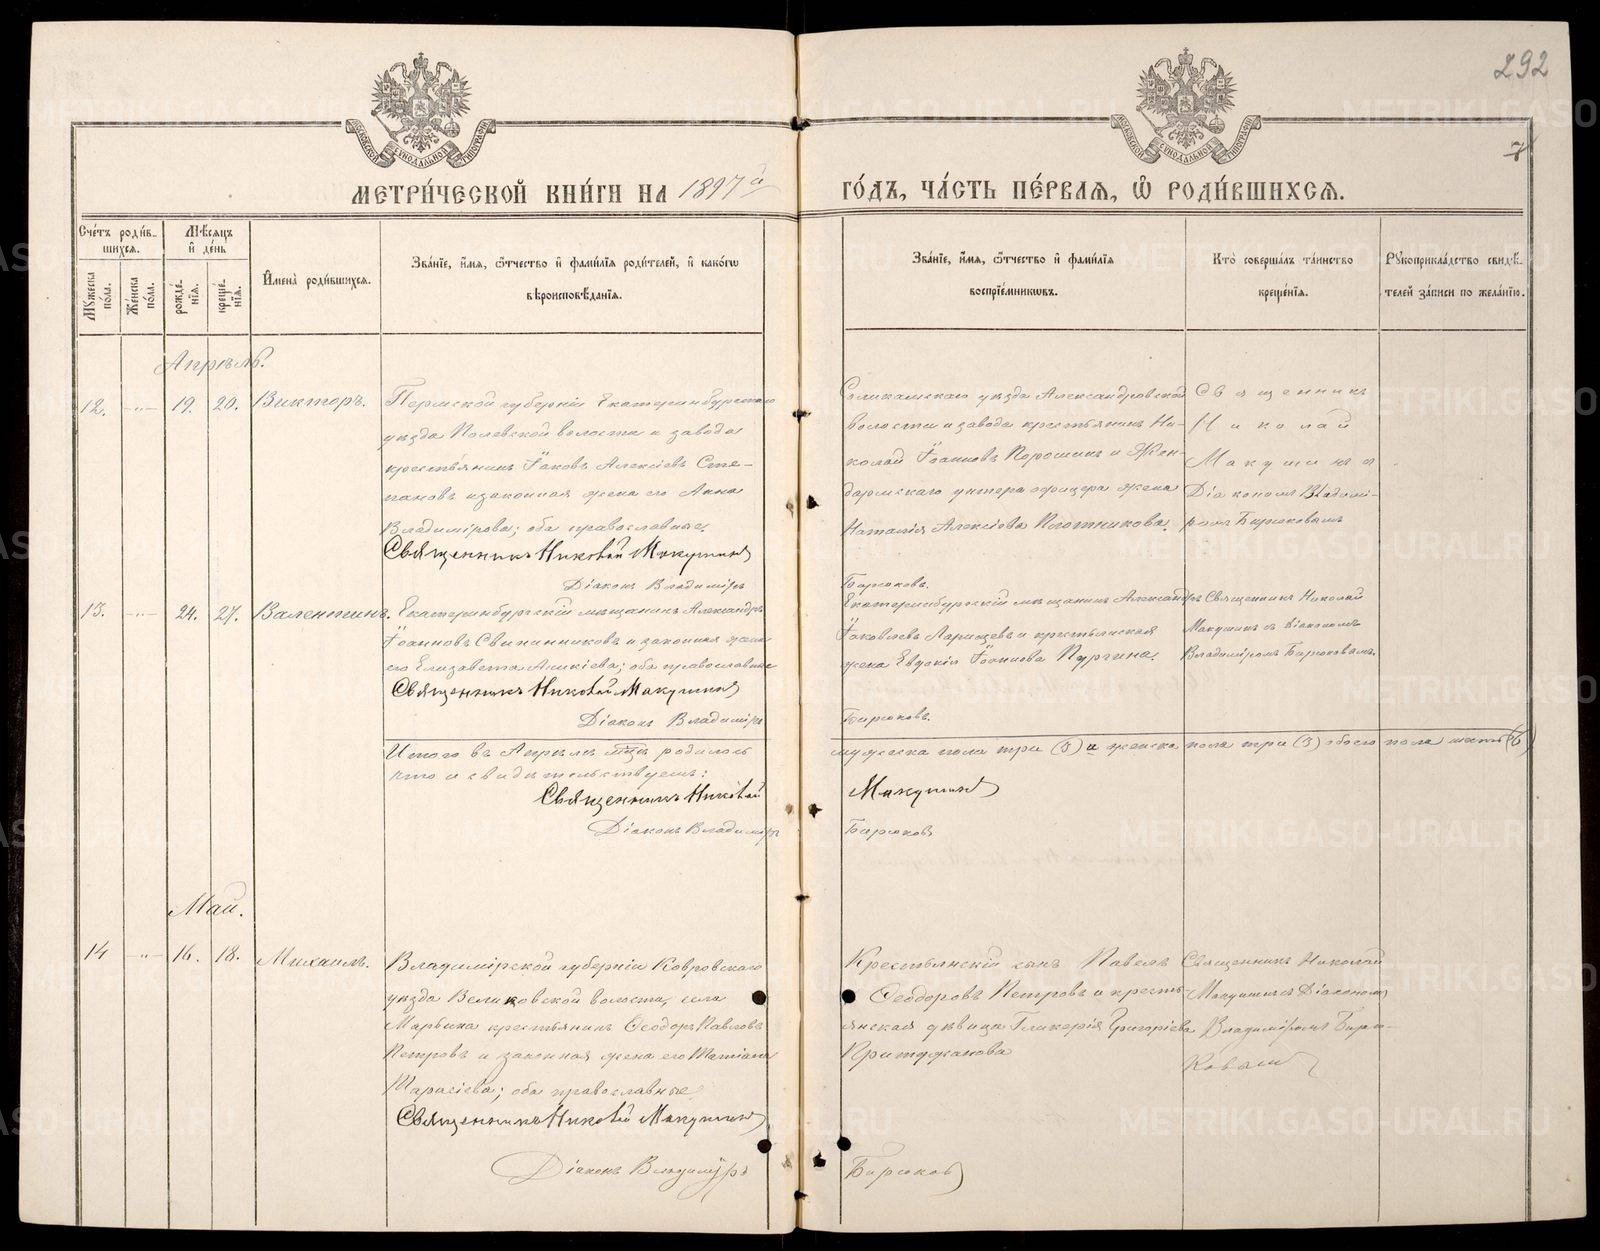 292
7
МЕТРИ́ЧЕСКОЙ КНИ́ГИ НА 1897 й ГО́ДЪ, ЧА́СТЬ ПЕ́РВАЯ, Ѡ РОДИ́ВШИХСЯ.
Сче́тъ роди́вшихся.
Мѣ́сяцъ и де́нь
Му́жеска по́ла.
Же́нска по́ла.
рожде́нїя.
креще́нїя.
Имена̀ роди́вшихся.
Зва́нїе, и́мя, ѻ́тчество и фами́лїя роди́телей, и како́гѡ
вѣроисповѣ́данїя.
Зва́нїе, и́мя, ѻ́тчество и фами́лїя
воспрїе́мниковъ.
Кто̀ соверша́лъ та́инство
креще́нїя.
Рꙋкоприкла́дство свидѣ́-
телей за́писи по жела́нїю.
Апрѣль.
12. -"- 19. 20. Викторъ.
Пермской губерніи Екатеринбургскаго
уѣзда Полевской волости и завода
крестьянинъ Іаковъ Алексіевъ Сте-
пановъ и законная жена его Анна
Владимірова; оба православные.
Священникъ Николай Макушинъ
Діаконъ Владиміръ
Соликамскаго уѣзда Александровской
волости и завода крестьянинъ Ни-
колай Іоанновъ Порошинъ и Жен-
дармскаго унтеръ офицера жена
Наталія Алексіева Плотникова.
Бирюковъ.
Священникъ
Николай
Макушинъ с
Діакономъ Владимі-
ромъ Бирюковымъ
13. -"- 24. 27. Валентинъ.
Екатеринбургскій мѣщанинъ Александръ
Іоанновъ Свининниковъ и законная жена
его Елизавета; оба православные
Священникъ Николай Макушинъ
Діаконъ Владиміръ
Екатеринбургскій мѣщанинъ Александръ
Іаковлевъ Ларищевъ и крестьянская
жена Евдокія Іоаннова Пургина.
Бирюковъ.
Священникъ Николай
Макушинъ съ Діакономъ
Владиміромъ Бирюковымъ.
Итого въ Апрѣлѣ родилось мужеска пола три (3) и женска пола три (3) обоего пола шесть (6)
что и свидѣтельствуемъ:
Священникъ Николай Макушинъ
Діаконъ Владиміръ Бирюковъ
Май.
14 -"- 16. 18. Михаилъ.
Владимірской губерніи Ковровскаго
уѣзда Великовской волости, села
Марьина крестьянинъ Ѳеодоръ Павловъ
Петровъ и законная жена его Татіана
Тарасіева; оба православные
Священникъ Николай Макушинъ
Діаконъ Владиміръ
Крестьянскій сынъ Павелъ
Ѳеодоровъ Петровъ и кресть-
янская дѣвица Гликерія Григоріева
Бирюковъ
Священникъ Николай
Макушинъ съ Діакономъ
Владиміромъ Бирю-
ковымъ